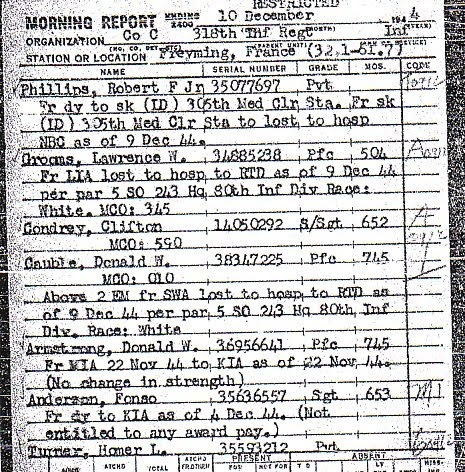 RESTRICTED
MORNING REPORT ENDING 2400 10 December 1944
ORGANIZATION Co C 318th Inf Regt Inf
STATION OR LOCATION Freyming, France (32.1-61.7)
NAME SERIAL NUMBER GRADE MOS. CODE
Phillips, Robert F Jr 35077697 Pvt
Fr dy to sk (ID) 305th Med Clr Sta. Fr sk
(ID) 305th Med Clr Sta to lost to hosp
NBC as of 9 Dec 44.
Grooms, Lawrence W. 34885238 Pfc 504
Fr LIA lost to hosp to RTD as of 9 Dec 44
per par 5 SO 243 Hq 80th Inf Div Race:
White. MCO: 345
Condrey, Clifton 14050292 S/Sgt 652
MCO: 590
Cauble, Donald W. 38347225 Pfc 745
MCO: 010
Above 2 EM fr SWA lost to hosp to RTD as
of 9 Dec 44 per par 5 SO 243 Hq 80th Inf
Div. Race: White
Armstrong, Donald W. 36956641 Pfc 745
Fr MIA 22 Nov 44 to KIA as of 22 Nov 44.
(No change in strength)
Anderson, Fonso 35636557 Sgt 653
Fr dy to KIA as of 4 Dec 44. (Not
entitled to any award pay.)
Turner, Homer L. 35593212 Pvt
PRESENT ABSENT